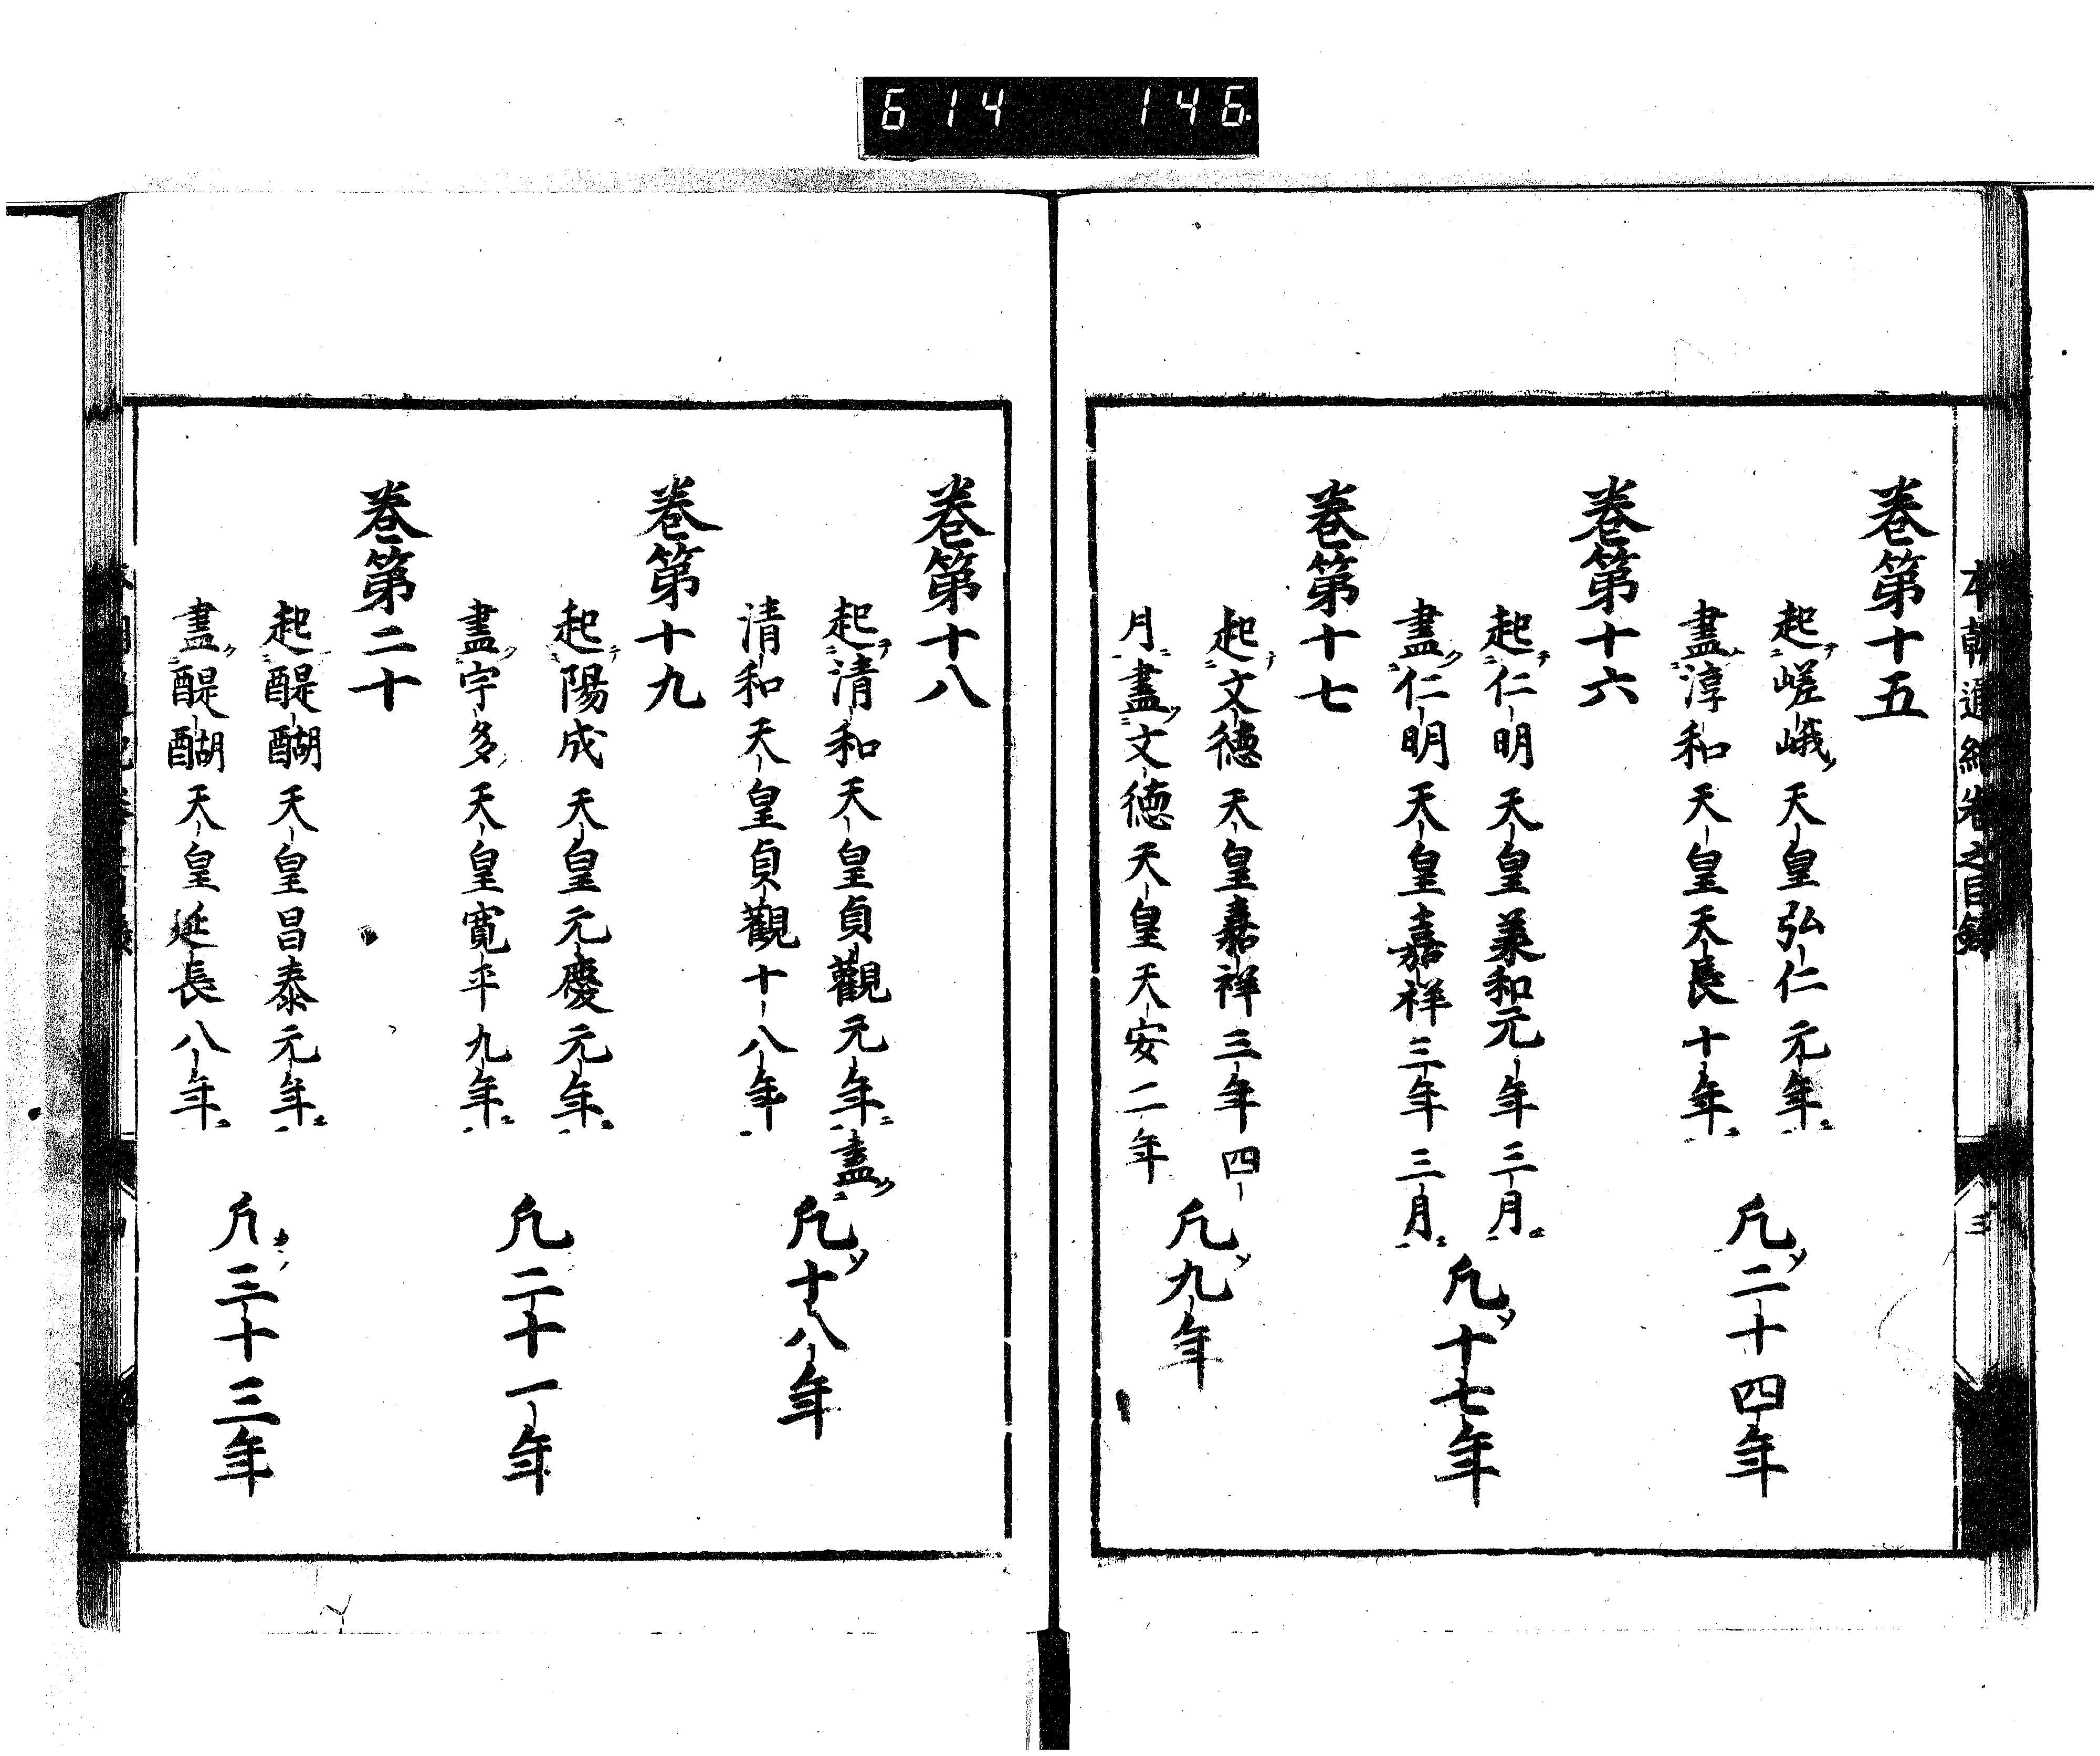 614 146
本朝通紀卷之目録
三
卷第十五
起嵯峨天皇弘仁元年
盡淳和天皇天長十年
凢二十四年
卷第十六
起仁明天皇兼和元年三月
盡仁明天皇嘉祥三年三月
凢十七年
卷第十七
起文德天皇嘉祥三年四
月盡文德天皇天安二年
凢九年
卷第十八
起清和天皇貞觀元年盡
清和天皇貞觀十八年
凢十八年
卷第十九
起陽成天皇元慶元年
盡宇多天皇寛平九年
凢二十一年
卷第二十
起醍醐天皇昌泰元年
盡醍醐天皇延長八年
凢三十三年